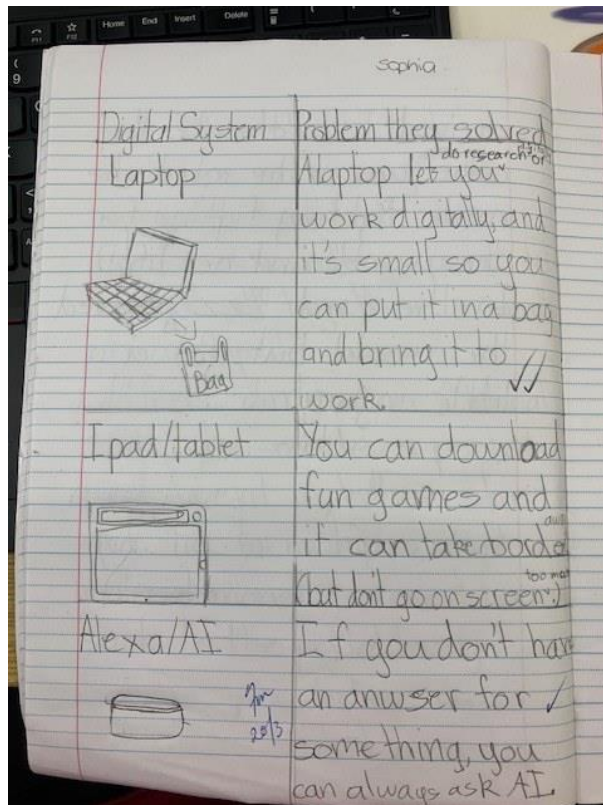 Home End Insert Delete
F11 F12
9
sophia
Digital System Problem they solved
Laptop A laptop lets you do research or
work digitally, and
it's small so you
can put it in a bag
Bag and bring it to
work.
Ipad/tablet You can download
fun games and
it can take
(but don't go on screen too
Alexa/AI If you don't
an anwser for
20/3 something, you
can always ask AI.